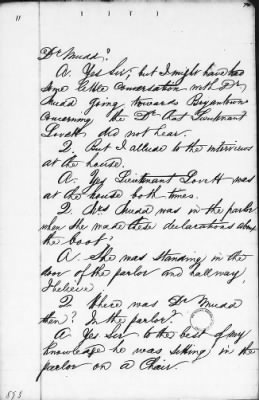 11
Dr Mudd?
A. Yes Sir; but I might have had
some little Conversation with Dr
Mudd going towards Bryantown
concerning the Dr that Lieutenant
Lovett did not hear.
Q. But I allude to the interviews
at the house.
A. Yes Lieutenant Lovett was
at the house both times.
Q. Mrs Mudd was in the parlor
when she made these declarations about
the boot?
A. She was standing in the
door of the parlor and hallway,
I believe.
Q. Where was Dr Mudd
then? In the parlor?
A. Yes Sir to the best of my
knowledge he was sitting in the
parlor on a Chair.
553